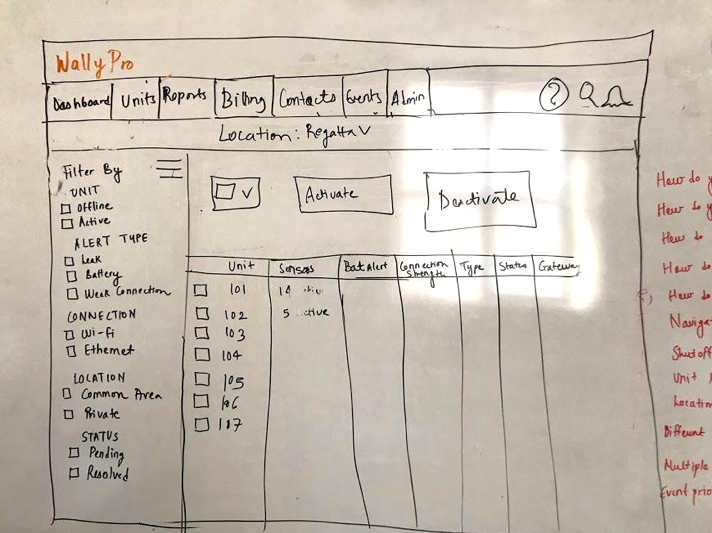 Wally Pro
Dashboard Units Reports Billing Contacts Events Admin ?
Location: Regatta V
Filter By
UNIT
Offline
Active
ALERT TYPE
Leak
Battery
Weak Connection
CONNECTION
Wi-Fi
Ethernet
LOCATION
Common Area
Private
STATUS
Pending
Resolved
V Activate Deactivate
Unit Sensors Bat Alert Connection Strength Type Status Gateway
101 14
102 5
103
104
105
106
107
How do
How do
How do
How do
How do
Shutoff
Unit
Location
Different
Multiple
Event